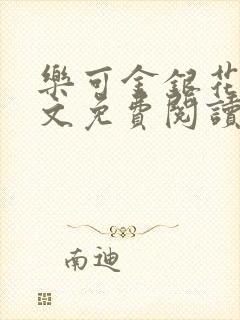 樂可金銀花
文免費閱讀
南迪